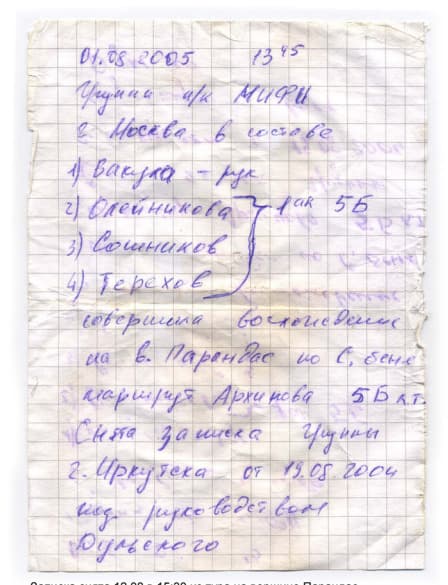 01.08.2005 13 45
Группа а/к МИФИ
г. Москва в составе
1) Вакула - рук
2) Олейникова
3) Сошников
4) Терехов
1 ак 5Б
совершила восхождение
на в. Парандас по С. стене
маршрут Архипова 5Б к.т.
Снята записка группы
г. Иркутска от 19.08.2004
под руководством
Дульского